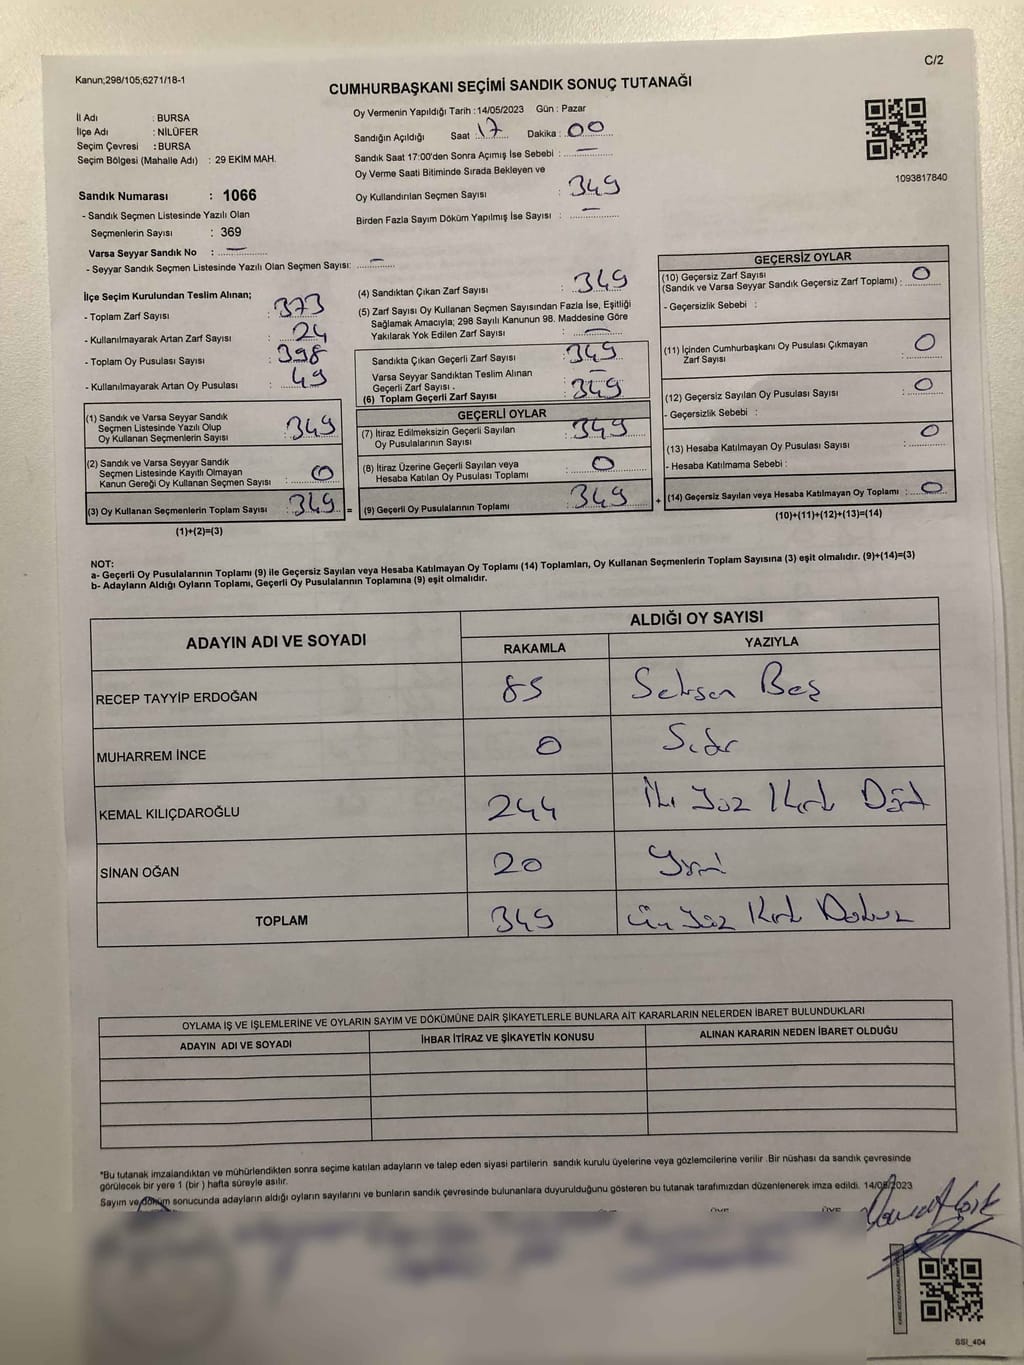 C/2
Kanun;298/105;6271/18-1
CUMHURBAŞKANI SEÇİMİ SANDIK SONUÇ TUTANAĞI
İl Adı : BURSA
İlçe Adı : NİLÜFER
Seçim Çevresi : BURSA
Seçim Bölgesi (Mahalle Adı) : 29 EKİM MAH.
Oy Vermenin Yapıldığı Tarih :14/05/2023 Gün : Pazar
Sandığın Açıldığı Saat : 17 Dakika : 00
Sandık Saat 17:00'den Sonra Açımış İse Sebebi : —
Oy Verme Saati Bitiminde Sırada Bekleyen ve
Oy Kullandırılan Seçmen Sayısı : 349
Birden Fazla Sayım Döküm Yapılmış İse Sayısı : —
1093817840
Sandık Numarası : 1066
- Sandık Seçmen Listesinde Yazılı Olan
Seçmenlerin Sayısı : 369
Varsa Seyyar Sandık No : —
- Seyyar Sandık Seçmen Listesinde Yazılı Olan Seçmen Sayısı: —
İlçe Seçim Kurulundan Teslim Alınan;
- Toplam Zarf Sayısı : 373
- Kullanılmayarak Artan Zarf Sayısı : 24
- Toplam Oy Pusulası Sayısı : 398
- Kullanılmayarak Artan Oy Pusulası : 49
(1) Sandık ve Varsa Seyyar Sandık
Seçmen Listesinde Yazılı Olup
Oy Kullanan Seçmenlerin Sayısı : 349
(2) Sandık ve Varsa Seyyar Sandık
Seçmen Listesinde Kayıtlı Olmayan
Kanun Gereği Oy Kullanan Seçmen Sayısı : 0
(3) Oy Kullanan Seçmenlerin Toplam Sayısı : 349 =
(1)+(2)=(3)
(4) Sandıktan Çıkan Zarf Sayısı : 349
(5) Zarf Sayısı Oy Kullanan Seçmen Sayısından Fazla İse, Eşitliği
Sağlamak Amacıyla; 298 Sayılı Kanunun 98. Maddesine Göre
Yakılarak Yok Edilen Zarf Sayısı : —
Sandıkta Çıkan Geçerli Zarf Sayısı : 349
Varsa Seyyar Sandıktan Teslim Alınan
Geçerli Zarf Sayısı . —
(6) Toplam Geçerli Zarf Sayısı : 349
GEÇERLİ OYLAR
(7) İtiraz Edilmeksizin Geçerli Sayılan
Oy Pusulalarının Sayısı : 349
(8) İtiraz Üzerine Geçerli Sayılan veya
Hesaba Katılan Oy Pusulası Toplamı : 0
(9) Geçerli Oy Pusulalarının Toplamı : 349 +
GEÇERSİZ OYLAR
(10) Geçersiz Zarf Sayısı
(Sandık ve Varsa Seyyar Sandık Geçersiz Zarf Toplamı) : 0
- Geçersizlik Sebebi :
(11) İçinden Cumhurbaşkanı Oy Pusulası Çıkmayan
Zarf Sayısı : 0
(12) Geçersiz Sayılan Oy Pusulası Sayısı : 0
- Geçersizlik Sebebi :
(13) Hesaba Katılmayan Oy Pusulası Sayısı : 0
- Hesaba Katılmama Sebebi :
(14) Geçersiz Sayılan veya Hesaba Katılmayan Oy Toplamı : 0
(10)+(11)+(12)+(13)=(14)
NOT:
a- Geçerli Oy Pusulalarının Toplamı (9) ile Geçersiz Sayılan veya Hesaba Katılmayan Oy Toplamı (14) Toplamları, Oy Kullanan Seçmenlerin Toplam Sayısına (3) eşit olmalıdır. (9)+(14)=(3)
b- Adayların Aldığı Oyların Toplamı, Geçerli Oy Pusulalarının Toplamına (9) eşit olmalıdır.
ADAYIN ADI VE SOYADI
ALDIĞI OY SAYISI
RAKAMLA YAZIYLA
RECEP TAYYİP ERDOĞAN 85 Seksen Beş
MUHARREM İNCE 0 Sıfır
KEMAL KILIÇDAROĞLU 244 İki Yüz Kırk Dört
SİNAN OĞAN 20 Yirmi
TOPLAM 349 Üç Yüz Kırk Dokuz
OYLAMA İŞ VE İŞLEMLERİNE VE OYLARIN SAYIM VE DÖKÜMÜNE DAİR ŞİKAYETLERLE BUNLARA AİT KARARLARIN NELERDEN İBARET BULUNDUKLARI
ADAYIN ADI VE SOYADI İHBAR İTİRAZ VE ŞİKAYETİN KONUSU ALINAN KARARIN NEDEN İBARET OLDUĞU
*Bu tutanak imzalandıktan ve mühürlendikten sonra seçime katılan adayların ve talep eden siyasi partilerin sandık kurulu üyelerine veya gözlemcilerine verilir .Bir nüshası da sandık çevresinde
görülecek bir yere 1 (bir ) hafta süreyle asılır.
Sayım ve döküm sonucunda adayların aldığı oyların sayılarını ve bunların sandık çevresinde bulunanlara duyurulduğunu gösteren bu tutanak tarafımızdan düzenlenerek imza edildi. 14/05/2023
SSI_404